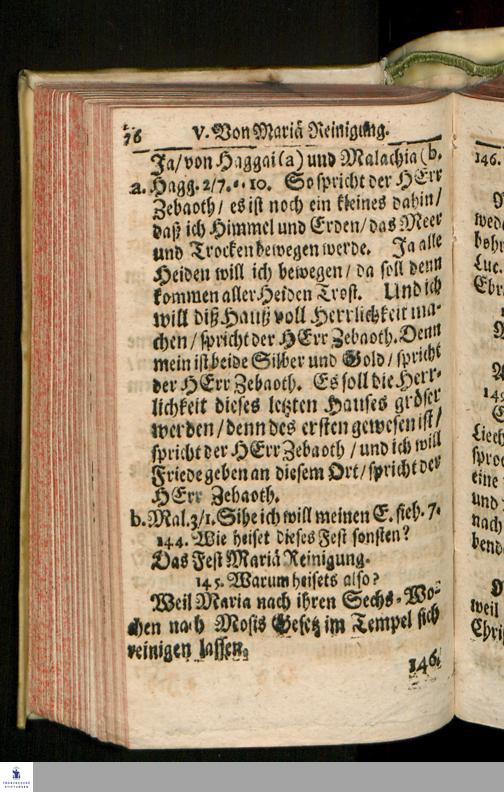 76 V. Von Mariä Reinigung.
Ja/ von Haggai (a) und Malachia (b.
a. Hagg. 2/7. s. 10. So spricht der HErr
Zebaoth/ es ist noch ein kleines dahin/
daß ich Himmel und Erden/ das Meer
und Trocken bewegen werde. Ja alle
Heiden will ich bewegen/ da soll denn
kommen aller Heiden Trost. Und ich
will diß Hauß voll Herrlichkeit ma-
chen/ spricht der HErr Zebaoth. Denn
mein ist beide Silber und Gold/ spricht
der HErr Zebaoth. Es soll die Herr-
lichkeit dieses letzten Hauses gröser
werden/ denn des ersten gewesen ist/
spricht der HErr Zebaoth/ und ich will
Friede geben an diesem Ort/ spricht der
HErr Zebaoth.
b. Mal. 3/1. Sihe ich will meinen E. sieh. 7.
144. Wie heiset dieses Fest sonsten?
Das Fest Mariä Reinigung.
145. Warum heisets also?
Weil Maria nach ihren Sechs-Wo-
chen nach Mosis Gesetz im Tempel sich
reinigen lassen.
146.
146.
wed
bohr
Luc.
Ebr
145
Liech
sproc
eine
und
nach
bend
weil
Chri
FRANCKESCHE
STIFTUNGEN